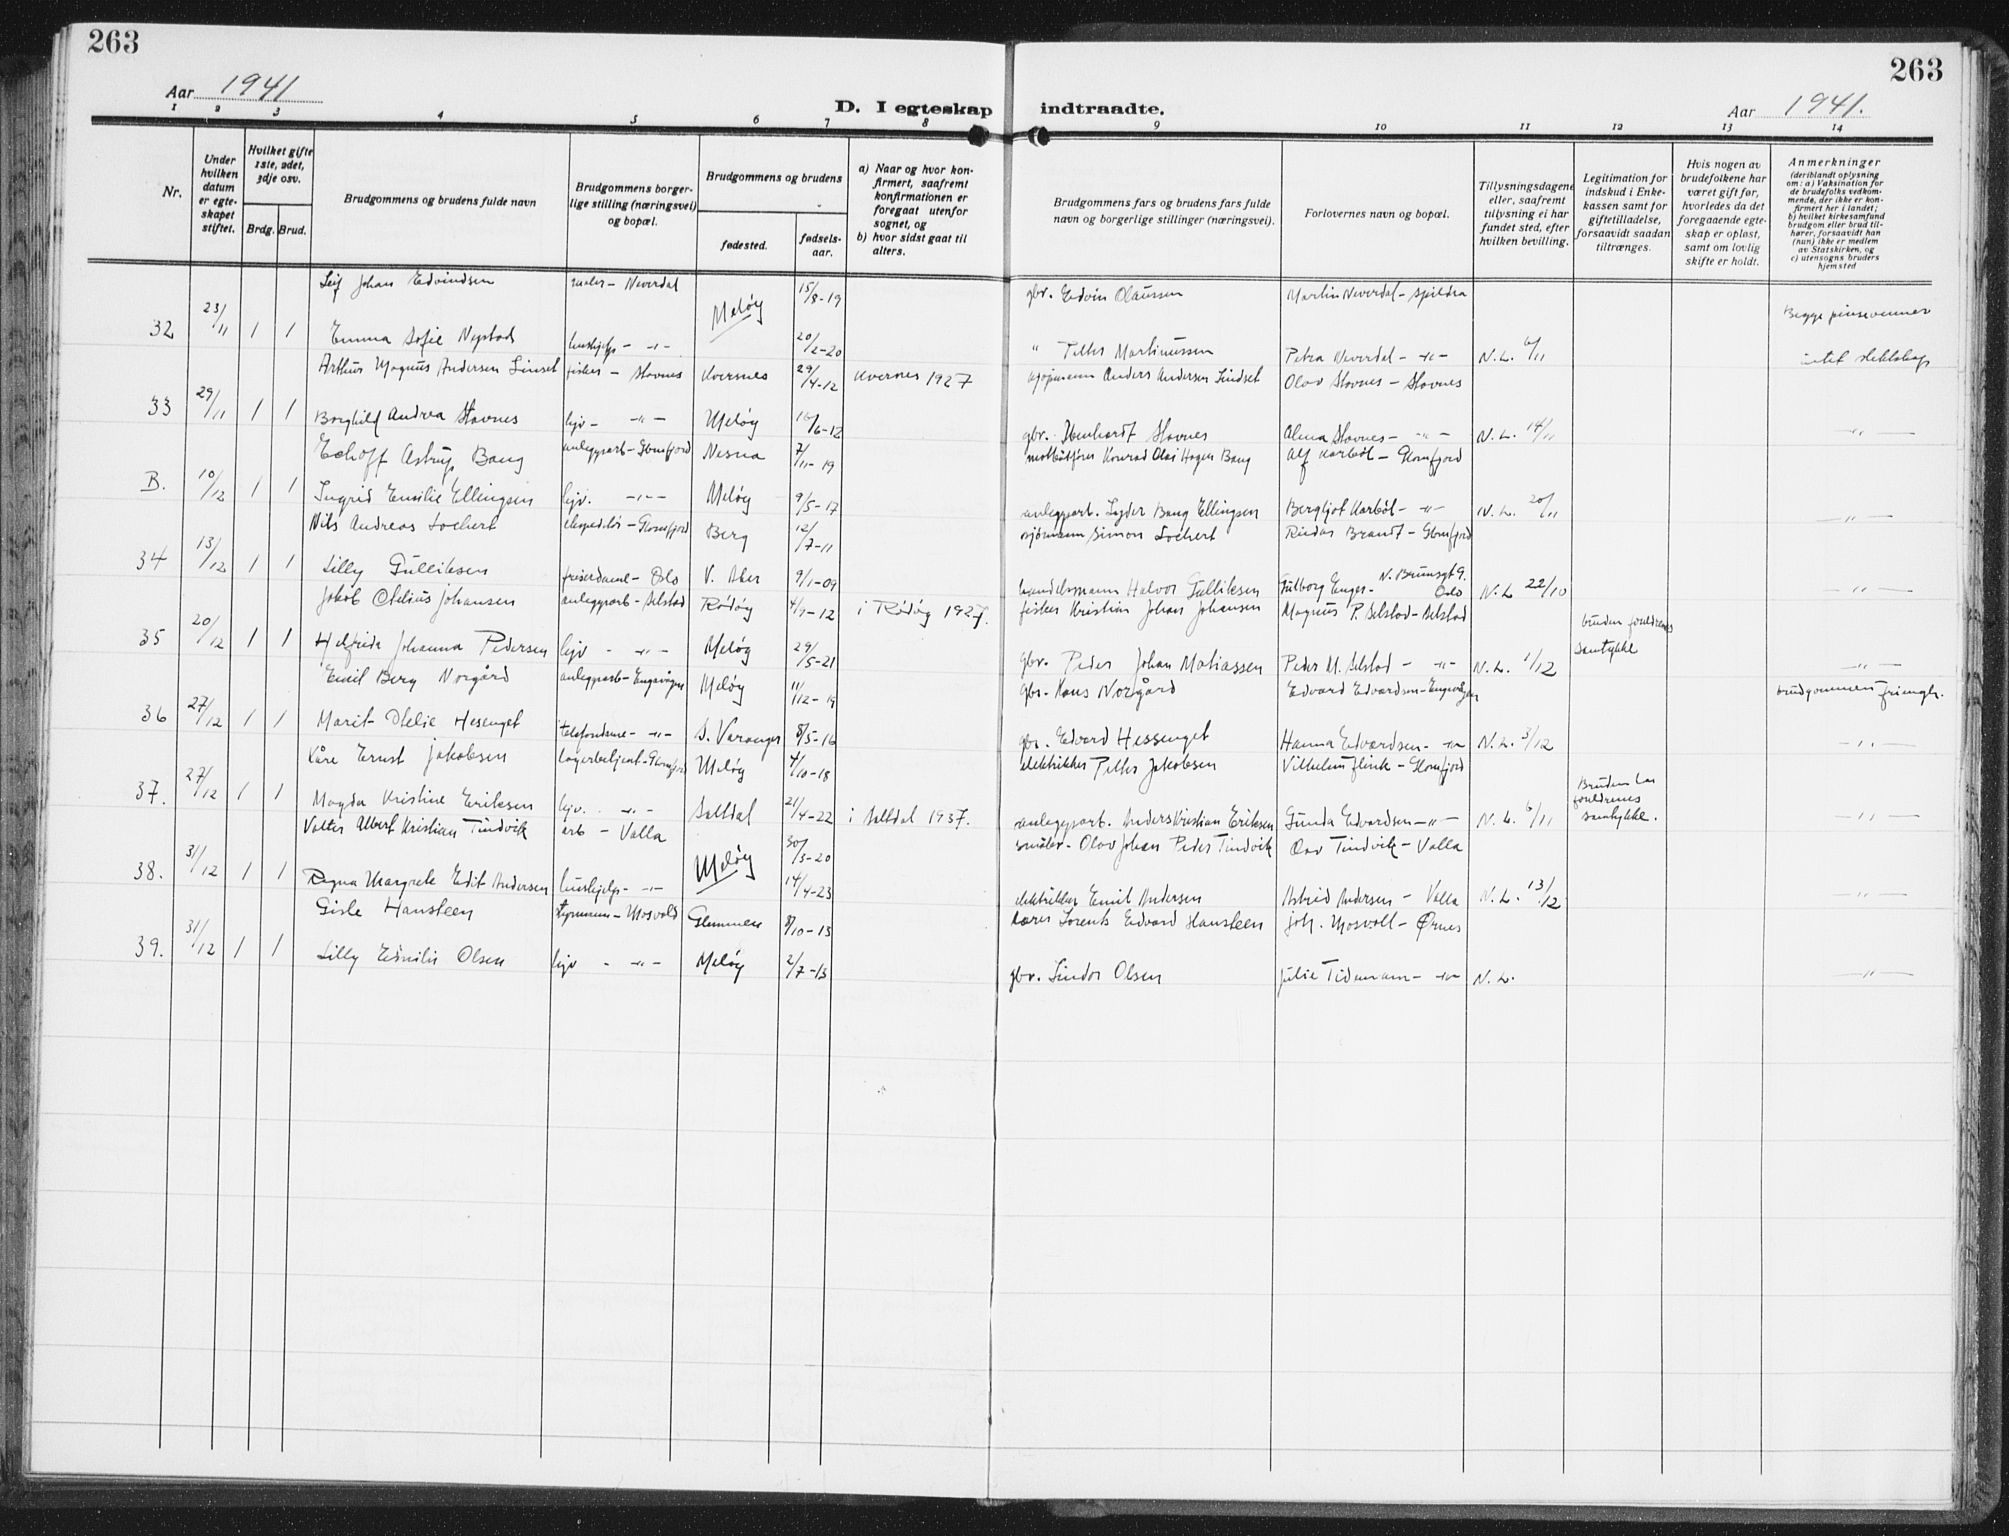 263
263
Aar 1941
D. I egteskap indtraadte.
Aar 1941.
1 2 3 4 5 6 7 8 9 10 11 12 13 14
Nr.
Under hvilken datum er egteskapet stiftet.
Hvilket gifte 1ste, 2det, 3dje osv.
Brdg. Brud.
Brudgommens og brudens fulde navn
Brudgommens borgerlige stilling (næringsvei) og bopæl.
Brudgommens og brudens
fødested.
fødselsaar.
a) Naar og hvor konfirmert, saafremt konfirmationen er foregaat utenfor sognet, og
b) hvor sidst gaat til alters.
Brudgommens fars og brudens fars fulde navn og borgerlige stillinger (næringsvei).
Forlovernes navn og bopæl.
Tillysningsdagene eller, saafremt tillysning ei har fundet sted, efter hvilken bevilling.
Legitimation for indskud i Enkekassen samt for giftetilladelse, forsaavidt saadan tiltrænges.
Hvis nogen av brudefolkene har været gift før, hvorledes da det foregaaende egteskap er opløst, samt om lovlig skifte er holdt.
Anmerkninger (deriblandt oplysning om: a) Vaksination for de brudefolks vedkommende, der ikke er konfirmert her i landet; b) hvilket kirkesamfund brudgom eller brud tilhører, forsaavidt han (hun) ikke er medlem av Statskirken, og c) utensogns bruders hjemsted
Leif Johan Edvindsen maler - Neverdal 15/8-19 gbr. Edvin Olaussen Martin Neverdal - Spildra
32 23/11 1 1 Meløy Begge pinsevenner
Emma Sofie Nystad hushjelp - -"- 20/2-20 " Petter Martinussen Petra Neverdal - -"- N.L. 6/11 intet slektskap
Arthur Magnus Andersen Linset fisker - Stavnes Kvernes 29/4-12 Kvernes 1927 Anders Andersen Lindset Olav Stavnes - Stavnes
33 29/11 1 1 Borghild Andrea Stavnes hjv - -"- Meløy 16/6-12 gbr. Stavnes Alma Stavnes - -"- N.L. 14/11 -"-
Astrup Bang anleggsarb - Glomfjord Nesna 7/11-19 Konrad Olai Hagen Bang Alf Karbøl - Glomfjord
B. 10/12 1 1 Ingrid Emilie Ellingsen hjv. -"- Meløy 9/5-17 anleggsarb. Lyder Bang Ellingsen Bergljot Karbøl - -"- N.L. 20/11 -"-
Nils Andreas Lochert ekspeditør - Glomfjord Berg 12/7-11 sjømann Simon Lochert Reidar Brandt - Glomfjord
34 13/12 1 1 Lilly Gulliksen friserdame - Oslo V. Aker 9/1-09 handelsmann Halvor Gulliksen Enger - N. Brunsgt 9. Oslo N.L. 22/10 -"-
Jakob Johansen anleggsarb - Selstad Rødøy 4/9-12 i Rødøy 1927. fisker Kristian Johan Johansen Magnus P. Selstad - Selstad
35 20/12 1 1 Helfrida Johanna Pedersen hjv - -"- Meløy 29/5-21 gbr. Peder Johan Matiassen Peder M. Selstad - -"- N.L. 1/12 bruden foreldrenes samtykke -"-
Emil Berg Norgård anleggsarb - Engavågen Meløy 11/12-19 gbr. Hans Norgård Edvard Edvardsen - Engavågen brudgommen frimgh.
36 27/12 1 1 Marit Hesenget telefondame - -"- S. Varanger 8/5-16 gbr. Edvard Hessenget Hanna Edvardsen - -"- N.L. 3/12 -"-
Kåre Ernst Jakobsen lagerbetjent - Glomfjord Meløy 4/10-18 elektriker Petter Jakobsen Vilhelm Flink - Glomfjord
37. 27/12 1 1 Magda Kristine Eriksen hjv. -"- Saltdal 21/4-22 i Saltdal 1937. anleggsarb. Anders Kristian Eriksen Gunda Edvardsen - -"- N.L. 6/11 Bruden har foreldrenes samtykke. -"-
Valter Albert Kristian Tindvik arb - Valla 30/3-20 Olav Johan Peder Tindvik Olav Tindvik - Valla
38. 31/12 1 1 Meløy
Ragna Margrete Edit Andersen hushjelp - -"- 14/4-23 elektriker Emil Andersen Astrid Andersen - Valla N.L. 13/12 -"-
Gisle Hansteen styrmann - Mosvold Glemmen 8/10-13 Lærer Lorents Edvard Hansteen Joh. Mosvoll - Ørnes
39. 31/12 1 1 Lilly Olsen hjv - -"- Meløy 2/7-13 gbr. Sindor Olsen Julie Tidemann - -"- N.L. -"-